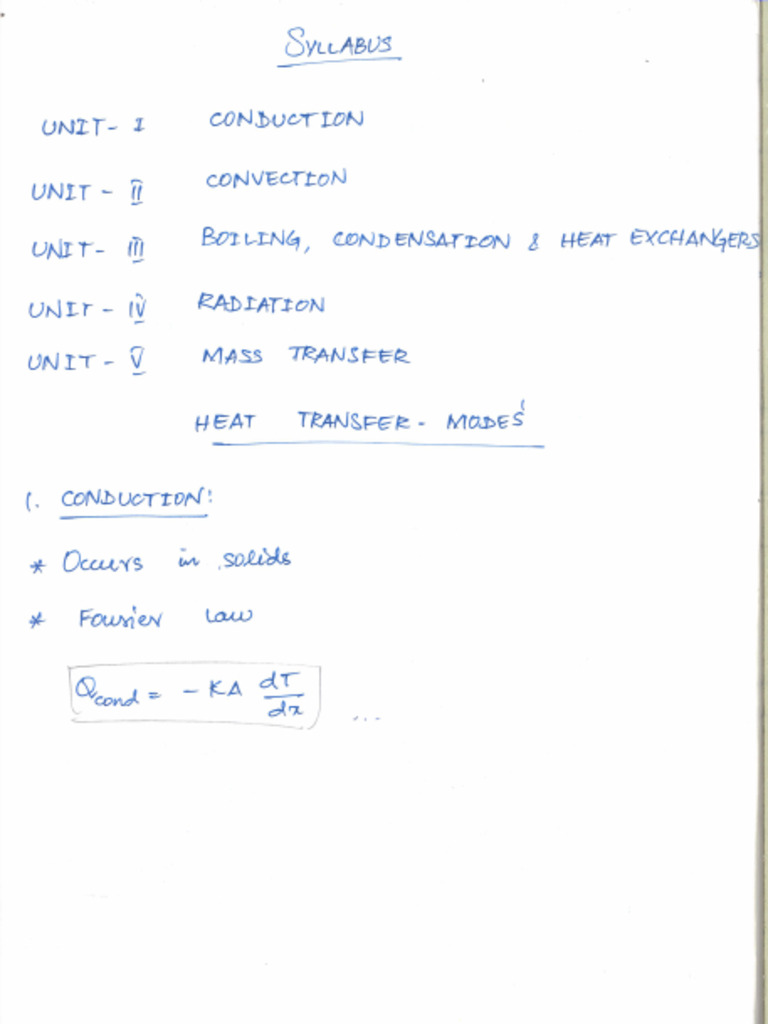 SYLLABUS
UNIT- I CONDUCTION
UNIT - II CONVECTION
UNIT- III BOILING, CONDENSATION & HEAT EXCHANGERS
UNIT - IV RADIATION
UNIT - V MASS TRANSFER
HEAT TRANSFER - MODES
1. CONDUCTION:
* Occurs in solids
* Fourier Law
Qcond = - KA dT/dx ...